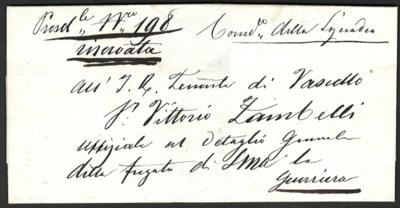 Prot.lle N.ro 198 Com.do della Squadra
riservata
all' I. R. Tenente di Vascello
S.r Vittorio Zambelli
uffiziale al dettaglio Generale
della fregata di S.M. la
Guerriera